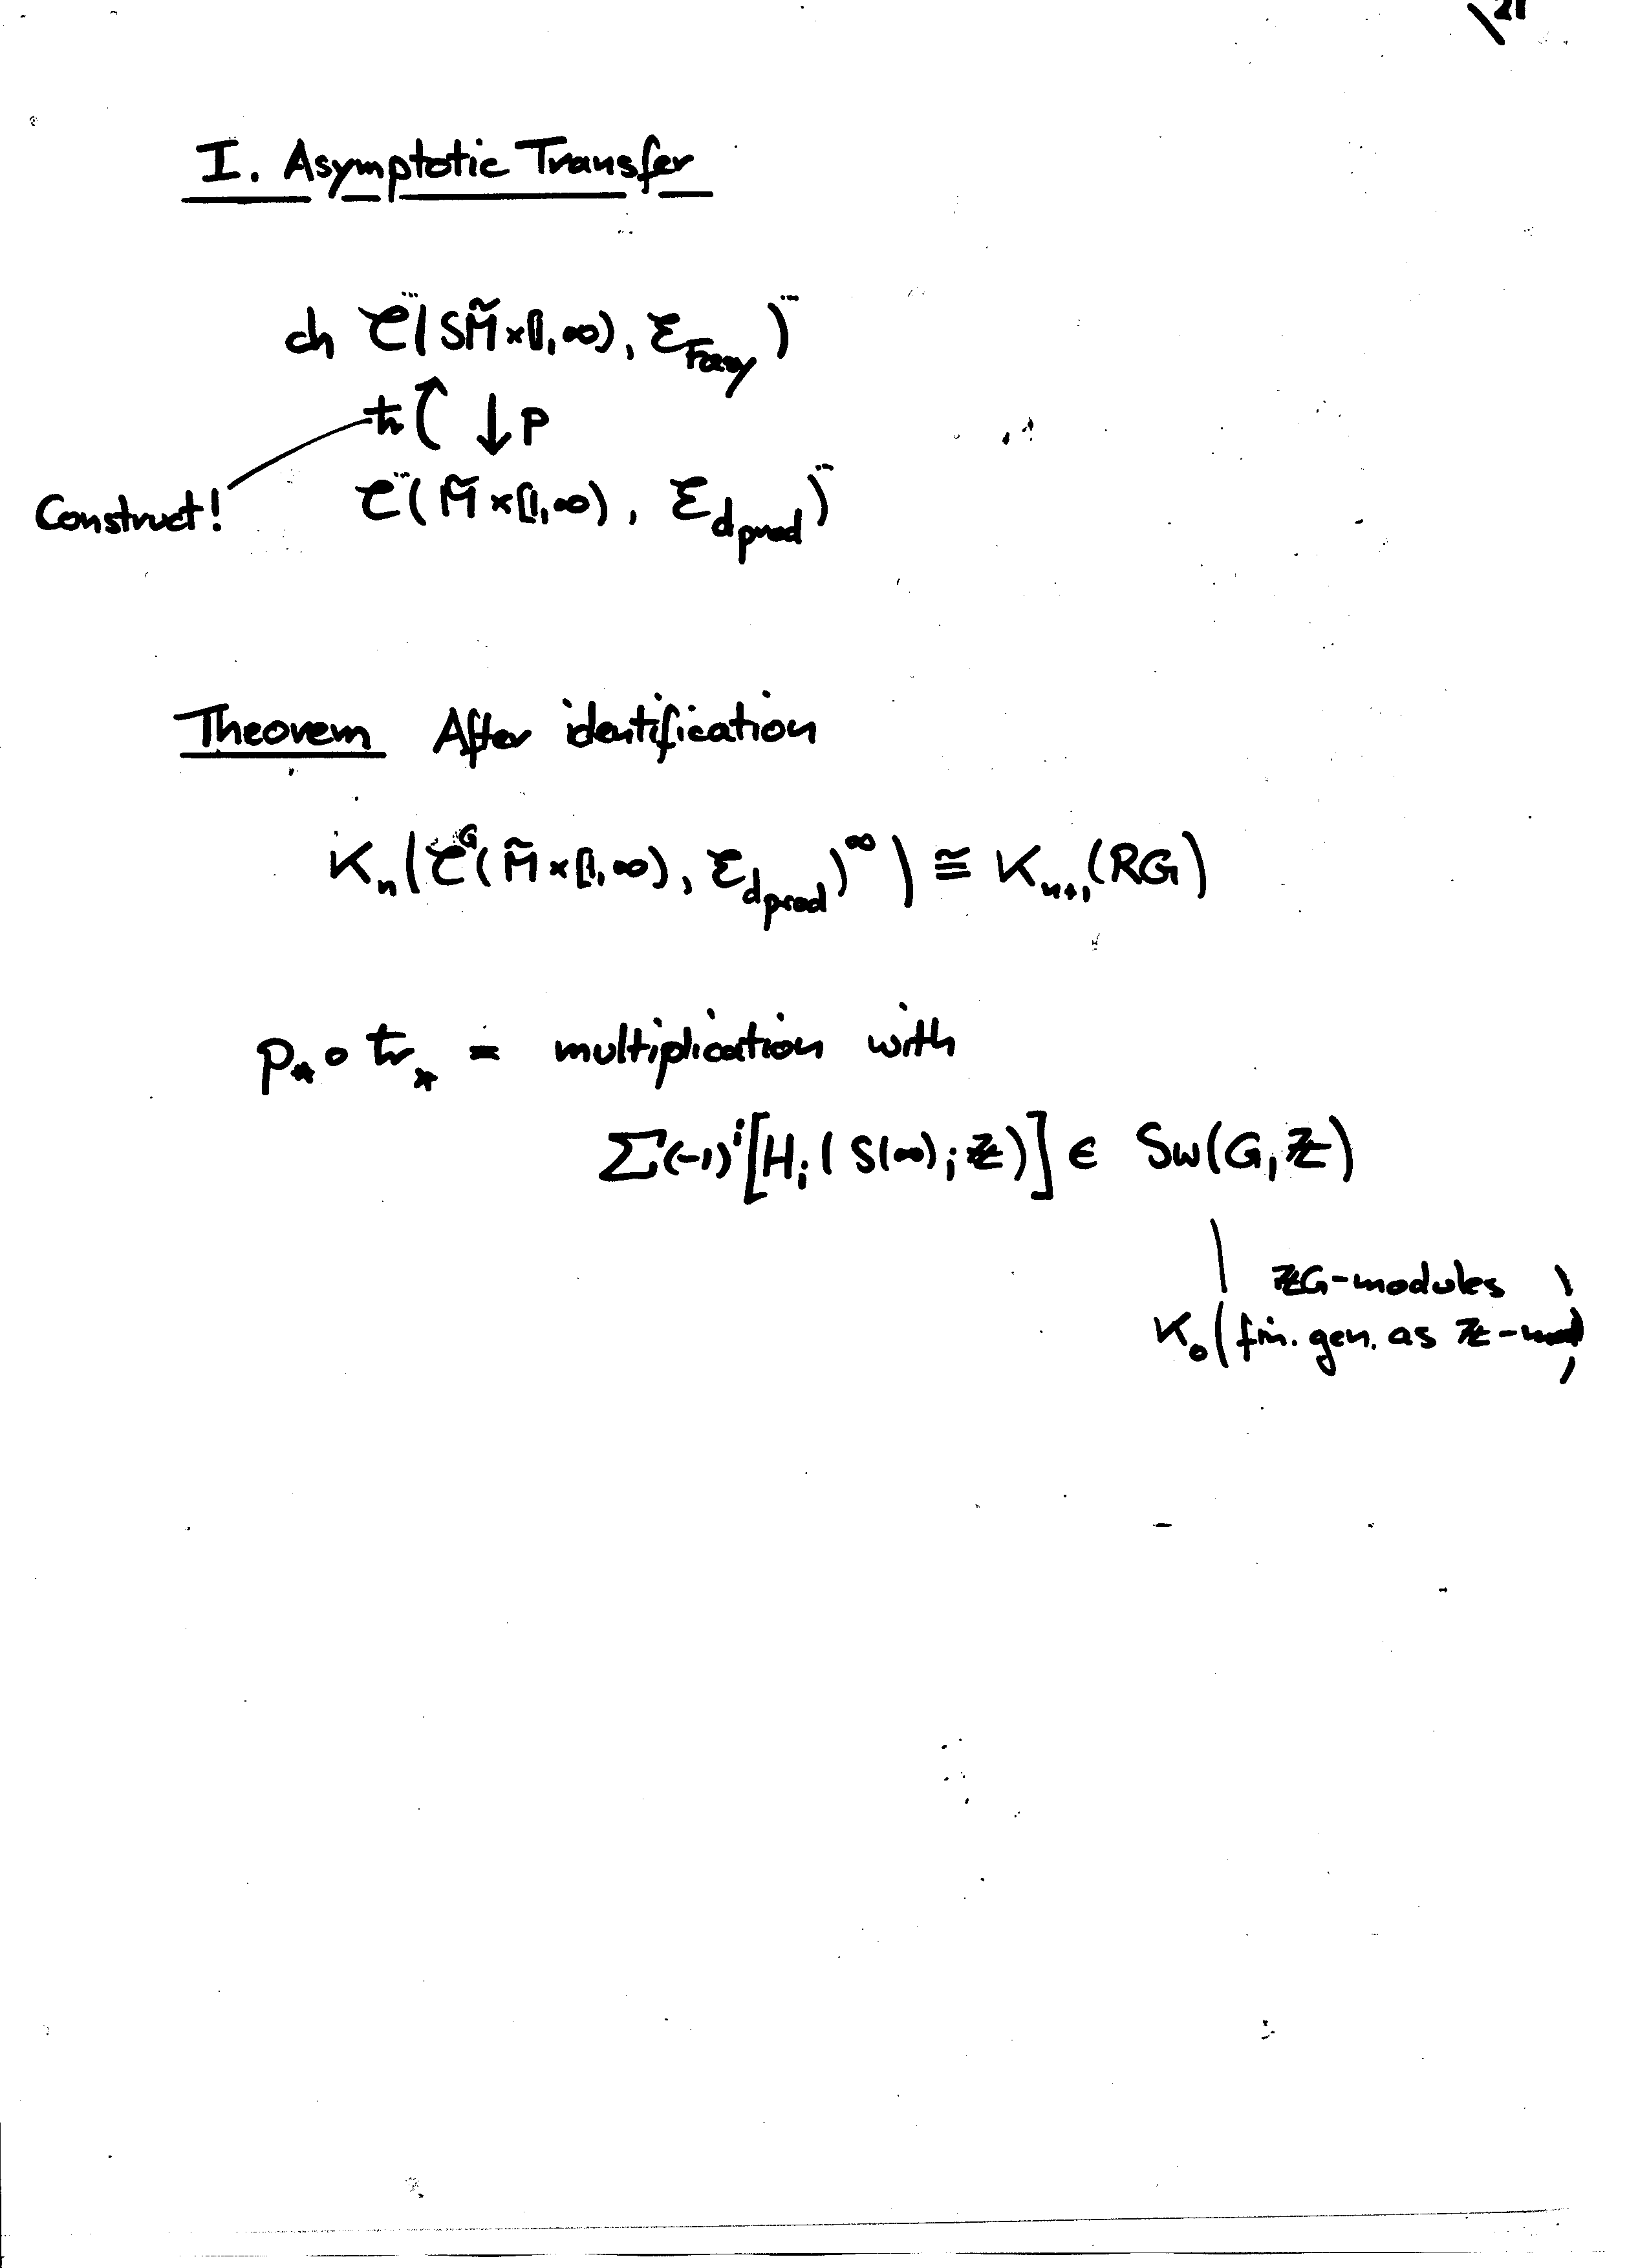 21
I. Asymptotic Transfer
ch 𝒞^{...}(SM̃ × [1,∞), ℰ_{Foxy})^{...}
tr ↑ ↓ p
Construct! 𝒞^{...}(M̃ × [1,∞), ℰ_{d_{prod}})^{...}
Theorem After identification
K_n(𝒞^G(M̃ × [1,∞), ℰ_{d_{prod}})^∞) ≅ K_{n+1}(RG)
p_* ∘ tr_* = multiplication with
Σ(-1)^i [H_i(S(∞); ℤ)] ∈ Sw(G, ℤ)
ℤG-modules
K_0(fin. gen. as ℤ-mod)